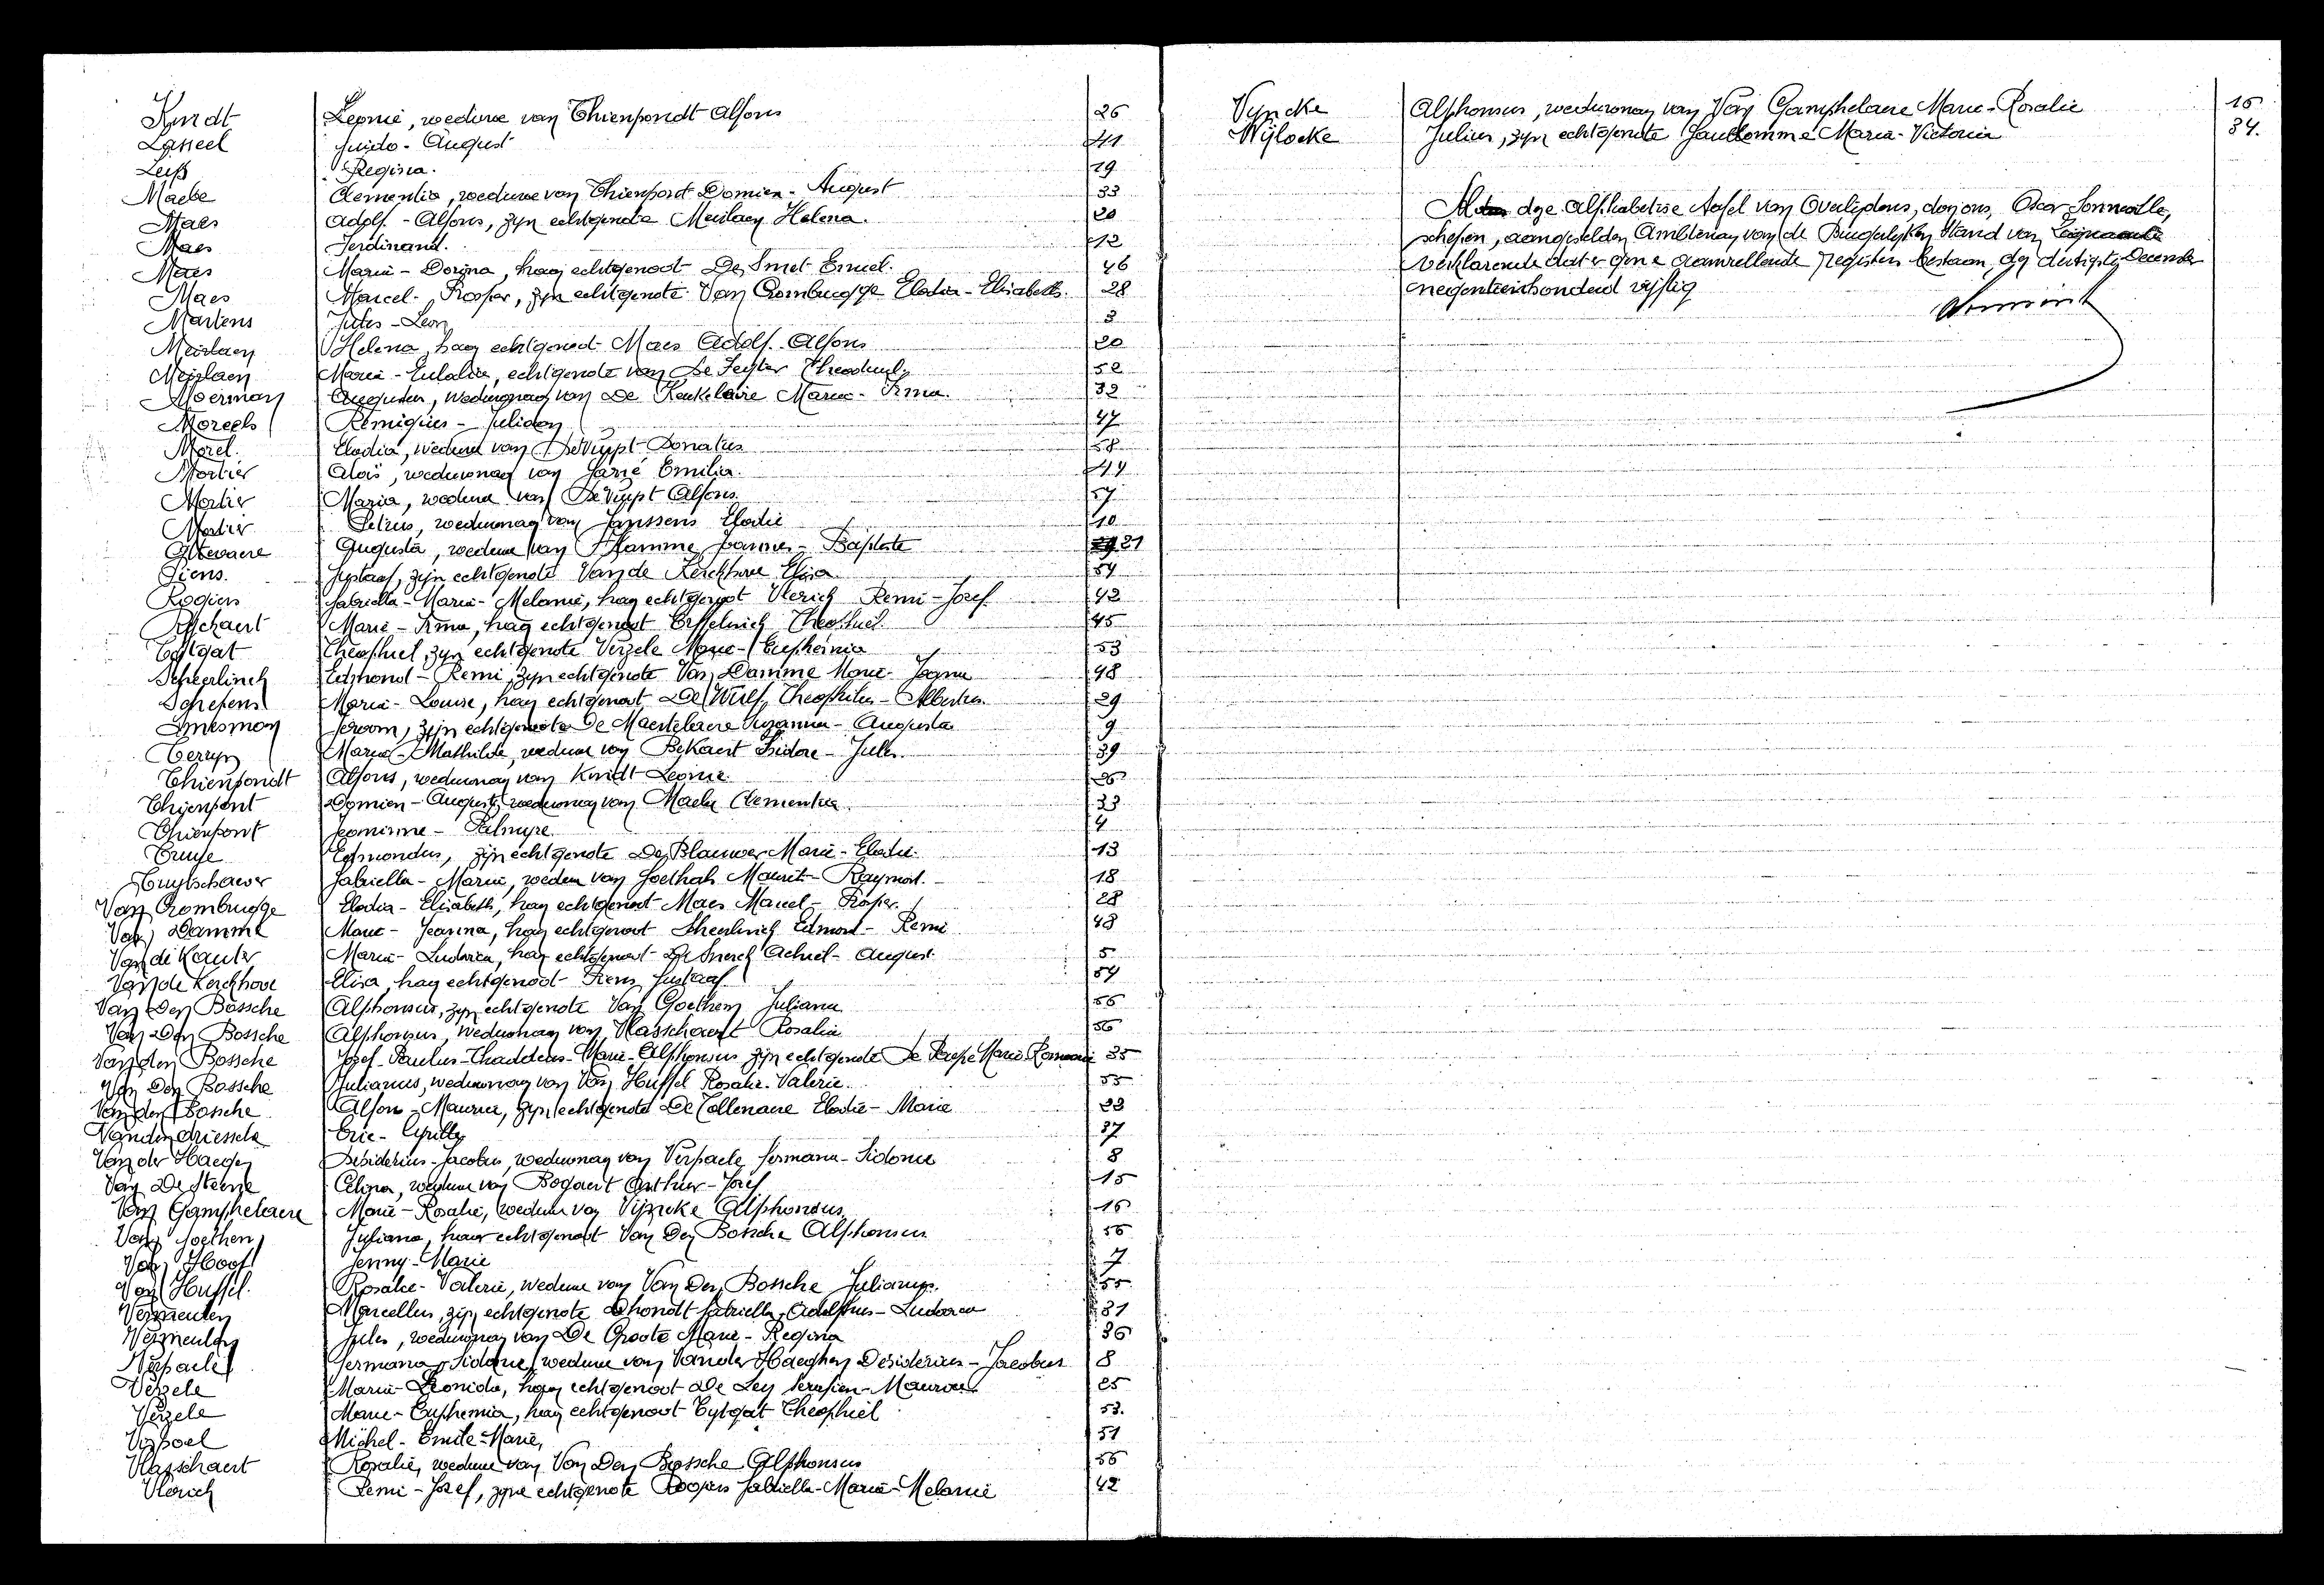 Kindt Leonie, weduwe van Thienpondt Alfons 26
Lasseel Guido - August 41
Regina. 19
Maebe Clementia, weduwe van Thienpont Domien - August 33
Maes Adolf. - Alfons, zyn echtgenote Meirlaen Helena. 20
Maes Ferdinand. 12
Maes Maria - Dorina, haar echtgenoot De Smet Emiel. 46
Maes Marcel - Prosper, zyn echtgenote Van Crombrugge Elodia - Elisabeth. 28
Martens Jules - Leon 3
Meirlaen Helena, haar echtgenoot Maes Adolf - Alfons 20
Meirlaen Maria - Eulalia, echtgenote van De Theophiel 52
Moerman weduwnaar van De Keukelaire Marie - Irma. 32
Moreels Remigius - 47
Morel Elodia, weduwe van De Vuyst Donatus 58
Mortier Aloïs, weduwnaar van Emilia. 44
Mortier Maria, weduwe van De Vuyst Alfons 57
Mortier Petrus, weduwnaar van Janssens Elodie 10
Ottevaere Augusta, weduwe van Vlamme Joannes - Baptiste 21
Piens. Gustaaf, zijn echtgenote Van de Kerckhove Elisa 54
Rogiers Gabriella - Maria - Melanie, haar echtgenoot Vlerick Remi - Jozef 42
Marie - Irma, haar echtgenoot Theophiel. 45
Theophiel, zyn echtgenote Verzele Marie - Euphemia 53
Scheerlinck Edmond - Remi, zyn echtgenote Van Damme Marie - Jeanna 48
Schepens Maria - Louise, haar echtgenoot De Wulf Theophilus - Albertus. 29
Smesman Jeroom, zijn echtgenote De Maertelaere Suzanna - Augusta 9
Terryn Maria - Mathilde, weduwe van Bekaert Isidore - Jules. 39
Thienpondt Alfons, weduwnaar van Kindt Leonie. 26
Thienpont Domien - August, weduwnaar van Maebe Clementia 33
Thienpont Jeannine - Palmyre 4
Edmondus, zijn echtgenote De Blauwer Marie - Elodie. 13
Tuytschaever Gabriella - Maria, weduwe van Goethals Maurits - Raymond. 18
Van Crombrugge Elodia - Elisabeth, haar echtgenoot Maes Marcel - Prosper. 28
Van Damme Marie - Jeanna, haar echtgenoot Scheerlinck Edmond - Remi 48
Van de Kauter Maria - Ludovica, haar echtgenoot De Achiel - August. 5
Van de Kerckhove Elisa, haar echtgenoot Piens Gustaaf 54
Van Den Bossche Alphonsus, zyn echtgenote Van Goethem Juliana 56
Van Den Bossche Alphonsus, weduwnaar van Vlasschaert Rosalia 56
Van den Bossche Jozef - Paulus - Thaddeus - Marie - Alphonsus zijn echtgenote De Paepe Marie 35
Van Den Bossche Julianus, weduwnaar van Van Huffel Rosalie - Valerie. 55
Van den Bossche Alfons - Maurice, zyn echtgenote De Tollenaere Elodie - Marie 22
Vandendriessche Eric - Cyrille 37
Van der Haegen Desiderius - Jacobus, weduwnaar van Verpaele Germana - Sidonie 8
Van De Steene Celina, weduwe van Bogaert Arthur - Jozef 15
Van Gamphelaere Marie - Rosalie, weduwe van Vyncke Alphonsus 16
Van Goethem Juliana, haar echtgenoot Van Den Bossche Alphonsus 56
Van Hoof Jenny - Marie 7
Van Huffel. Rosalie - Valerie, weduwe van Van Den Bossche Julianus. 55
Vermeulen Marcellus, zyn echtgenote Dhondt Gabriella - Adolphus - Ludovica 31
Vermeulen Jules, weduwnaar van De Groote Marie - Regina 36
Verpaele Germana - Sidonie, weduwe van Vander Haeghen Desiderius - Jacobus 8
Verzele Maria - Leonida, haar echtgenoot De Ley Serafien - Maurice 25
Verzele Marie - Euphemia, haar echtgenoot Tytgat Theophiel 53.
Michel - Emile - Marie, 51
Vlasschaert Rosalie, weduwe van Van Den Bossche Alphonsus 56
Vlerick Remi - Jozef, zyne echtgenote Rogiers Gabriella - Maria - Melanie 42
Vyncke Alphonsus, weduwnaar van Van Gamphelaere Marie - Rosalie 16
Wijlocke Julius, zyn echtgenote Maria - Victoria 34.
deze Alphabetise Tafel van Overlydens, door ons, Oscar
schepen, aangestelden Ambtenaar van de Burgerlyken Stand van
verklarende dat er gene aanvullende registers bestaan, den dertigsten December
negentienhonderd vyftig